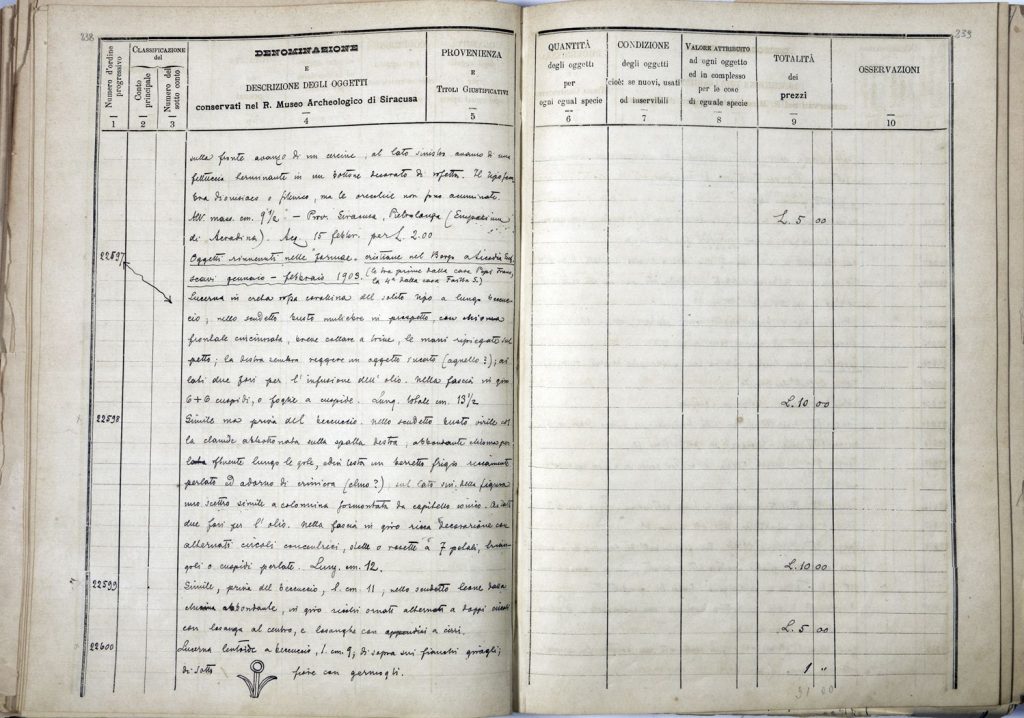 238
Numero d'ordine progressivo
CLASSIFICAZIONE
del
Conto principale
Numero del sotto conto
DENOMINAZIONE
E
DESCRIZIONE DEGLI OGGETTI
conservati nel R. Museo Archeologico di Siracusa
PROVENIENZA
E
TITOLI GIUSTIFICATIVI
1 2 3 4 5
sulla fronte avanzo di un cercine, al lato sinistro avanzo di una
fettuccia terminante in un bottone decorato di rosetta. Il tipo
dionisiaco o silenico, ma le orecchie non sono acuminate.
Alt. mass. cm. 9 1/2 - Prov. Siracusa, Pietralunga
di Acradina). Acq. 15 febbr. per L. 2.00
22597
Oggetti rinvenuti nelle "formae" cristiane nel Borgo a Licodia
scavi gennaio - febbraio 1903. (le tre prime dalla casa
la 4ª dalla casa
Lucerna in creta rossa corallina del solito tipo a lungo beccuc-
cio; nello scudetto busto muliebre in prospetto, con chioma
frontale cincinnata, breve collare a trine, le mani ripiegate sul
petto; la destra sembra reggere un oggetto sucato (agnello?); ai
lati due fori per l'infusione dell'olio. Nella fascia in giro
6+6 cuspidi, o foglie a cuspide. Lung. totale cm. 13 1/2
22598
Simile ma priva del beccuccio. Nello scudetto busto virile con
la clamide abbottonata sulla spalla destra, abbondante chioma per
fluente lungo le gote, ed in testa un berretto frigio riccamente
perlato ed adorno di crimiera (elmo?) sul lato sin. della figura
uno scettro simile a colonnina sormontata da capitello ionico. Ai lati
due fori per l'olio. Nella fascia in giro ricca decorazione con
alternati circoli concentrici, stelle o rosette a 7 petali, trian-
goli o cuspidi perlate. Lung. cm. 12.
22599
Simile, priva del beccuccio, l. cm. 11, nello scudetto leone dalla
chioma abbondante, in giro ornati alternati a doppi circoli
con losanga al centro, e losanghe con appendici a cirri.
22600
Lucerna lentoide a beccuccio, l. cm. 9; di sopra sui fianchi giragli;
di sotto fiore con germogli.
239
QUANTITÀ
degli oggetti
per
ogni egual specie
CONDIZIONE
degli oggetti
cioè: se nuovi, usati
od inservibili
VALORE ATTRIBUITO
ad ogni oggetto
ed in complesso
per le cose
di eguale specie
TOTALITÀ
dei
prezzi
OSSERVAZIONI
6 7 8 9 10
L. 5 00
L. 10 00
L. 10 00
L. 5 00
1 "
31 00